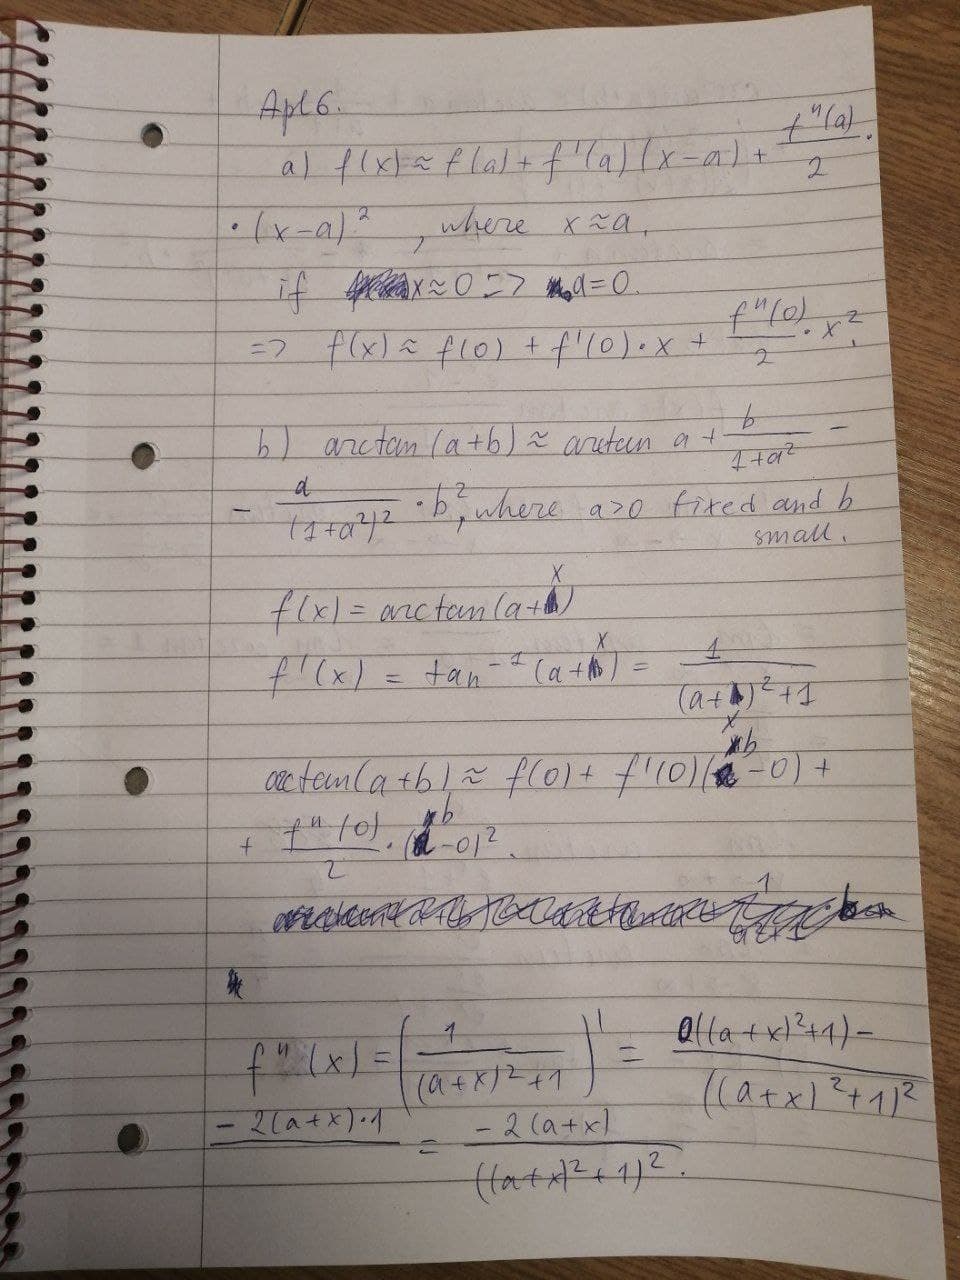 Apl 6.
a) f(x) ≈ f(a) + f'(a) (x-a) + f''(a)/2 ·
· (x-a)², where x≈a.
if x≈0 => a=0.
=> f(x) ≈ f(0) + f'(0)·x + f''(0)/2 · x².
b) arctan (a+b) ≈ arctan a + b/(1+a²) -
- a/(1+a²)² · b², where a>0 fixed and b
small.
f(x) = arctan(a+x)
f'(x) = tan⁻¹ (a+x) = 1/((a+x)²+1)
arctan(a+b) ≈ f(0) + f'(0)(b-0) +
+ f''(0)/2 · (b-0)².
f''(x) = (1/((a+x)²+1))' = 0((a+x)²+1) -/((a+x)²+1)²
- 2(a+x)·1 = -2(a+x)/((a+x)²+1)².